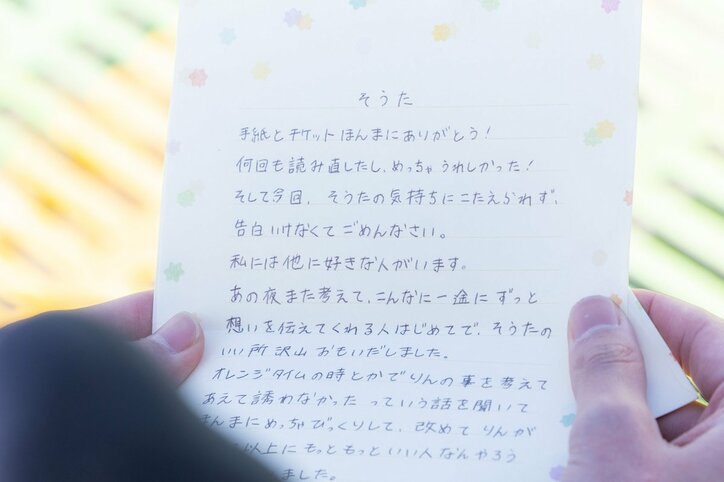 そうた
手紙とチケットほんまにありがとう!
何回も読み直したし、めっちゃうれしかった!
そして今回、そうたの気持ちにこたえられず、
告白いけなくてごめんなさい。
私には他に好きな人がいます。
あの夜また考えて、こんなに一途にずっと
想いを伝えてくれる人はじめてで、そうたの
いい所沢山おもいだしました。
オレンジタイムの時とかでりんの事を考えて
あえて誘わなかったっていう話を聞いて
ほんまにめっちゃびっくりして、改めてりんが
以上にもっともっといい人なんやろう
ました。